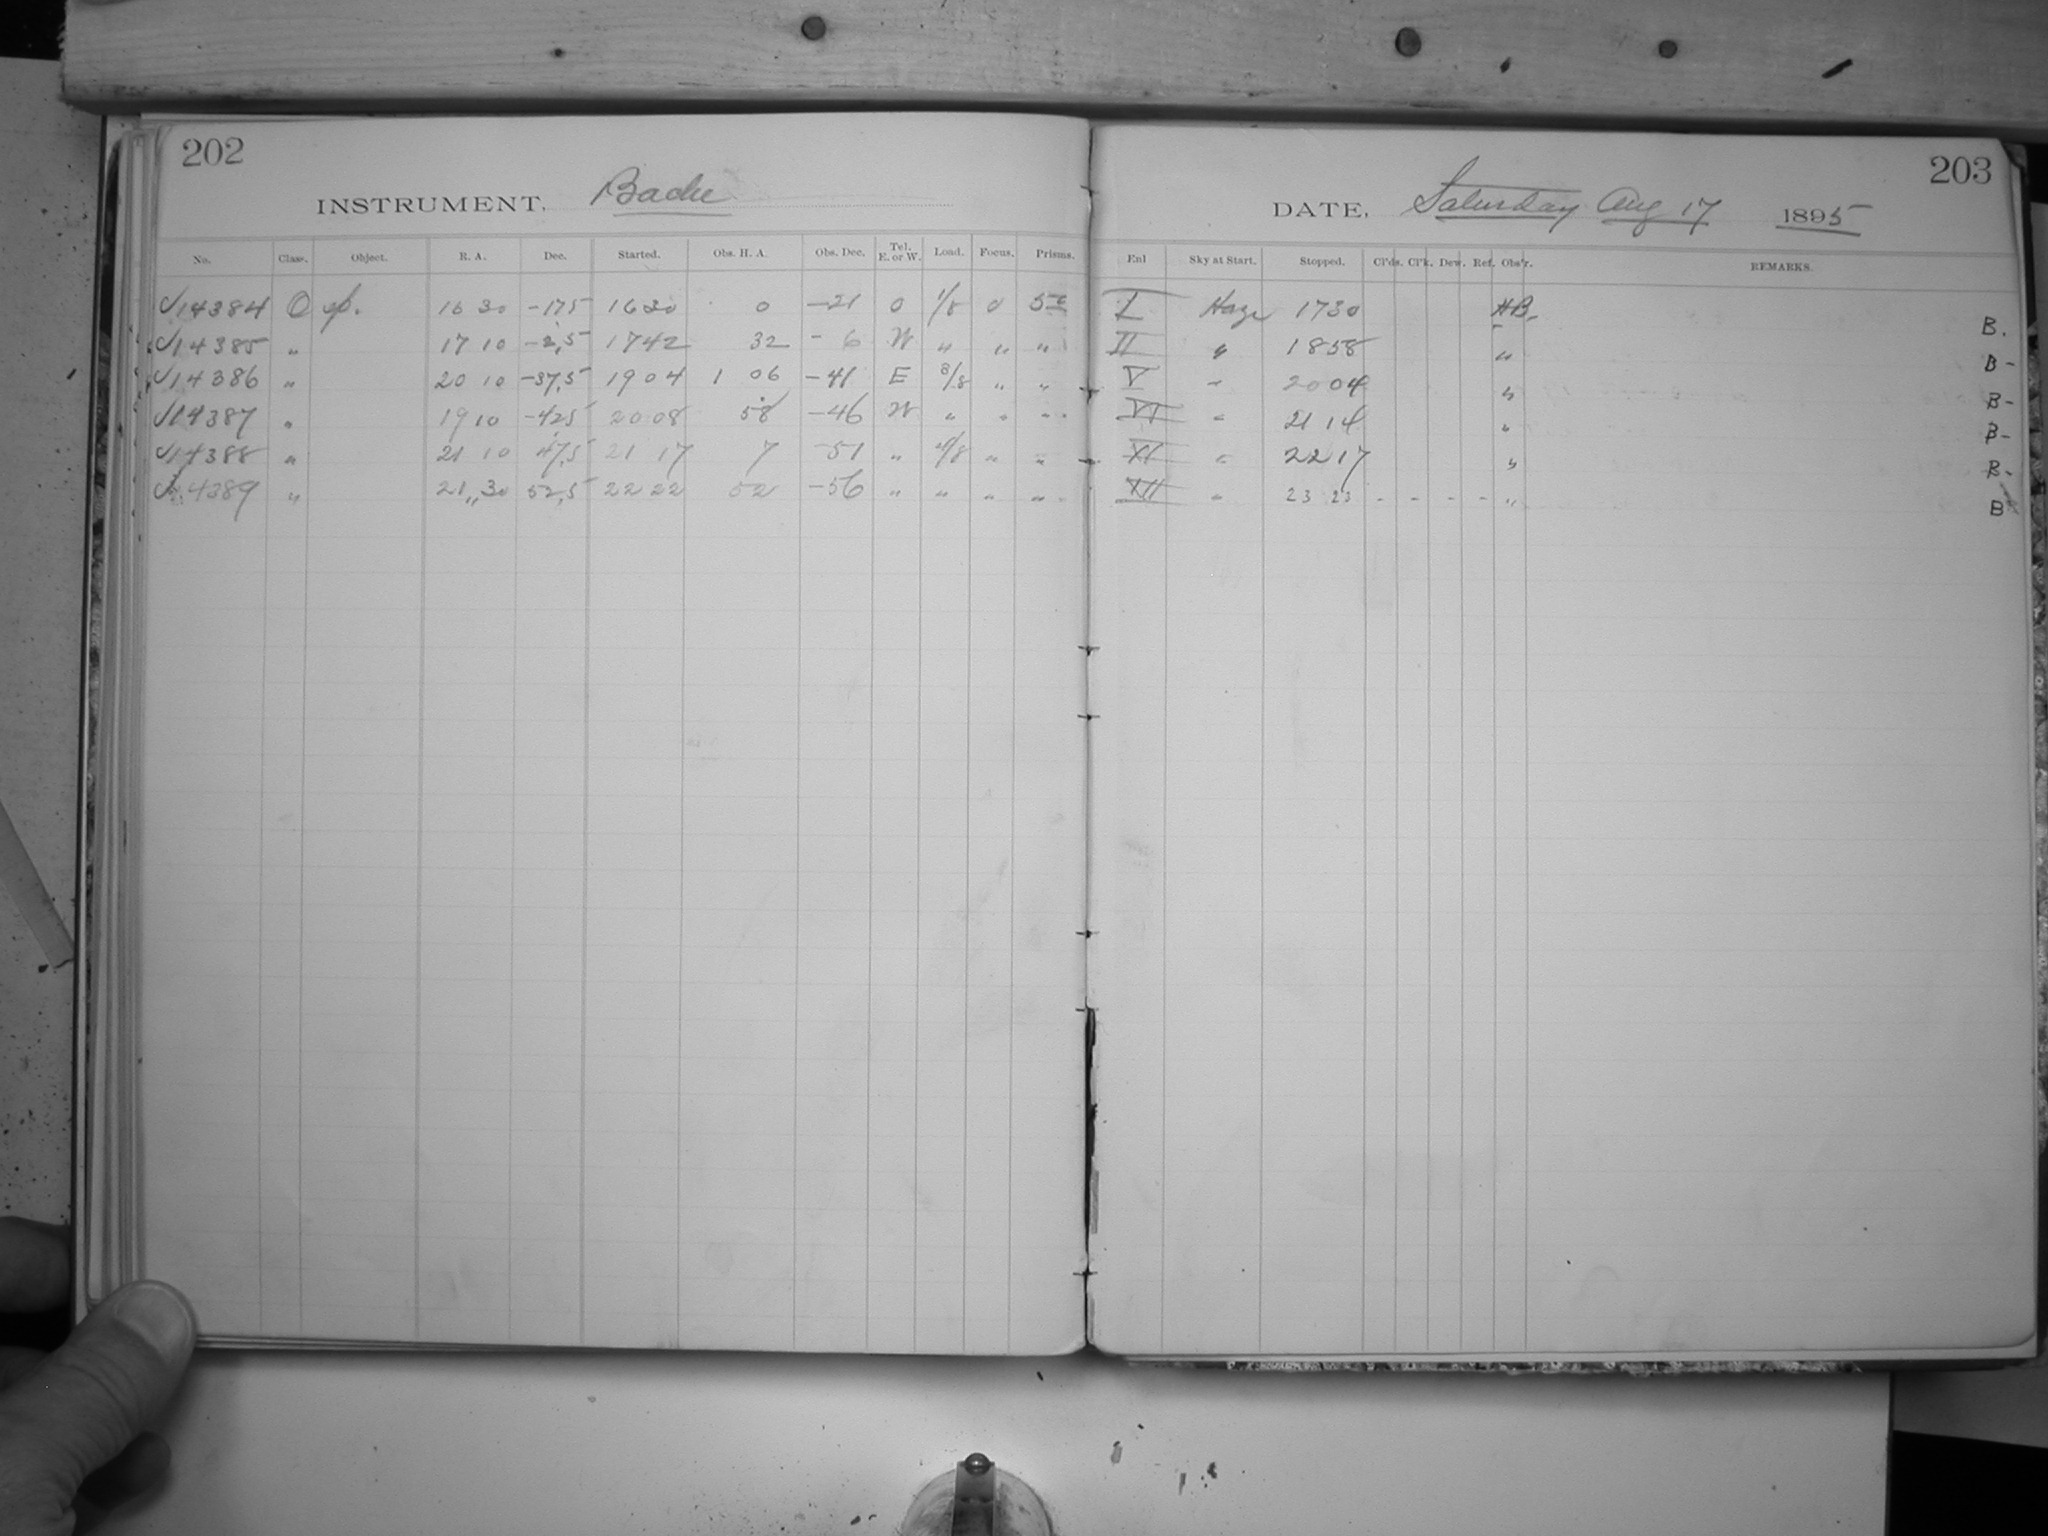 202
203
INSTRUMENT. Bache
DATE, Saturday Aug 17 1895
No. Class. Object. R. A. Dec. Started. Obs. H. A. Obs. Dec. Tel. E. or W. Load. Focus. Prisms. Enl Sky at Start. Stopped. Cl'ds. Cl'k. Dew. Ref. Obs'r. REMARKS.
√14384 O sp. 16 30 -17,5 1630 0 -21 0 1/8 0 50 I Haze 1730 HB. B.
√14385 " 17 10 -2,5 1742 32 -6 W " " " II " 1858 " B-
√14386 " 20 10 -37,5 1904 1 06 -41 E 3/8 " " V " 2004 " B-
√14387 " 19 10 -42,5 2008 58 -46 W " " " VI " 21 14 " B-
√14388 " 21 10 47,5 21 17 7 -51 " 4/8 " " XI " 2217 " B-
√14389 " 21 30 52,5 2222 52 -56 " " " " XII " 23 23 - - - - " B